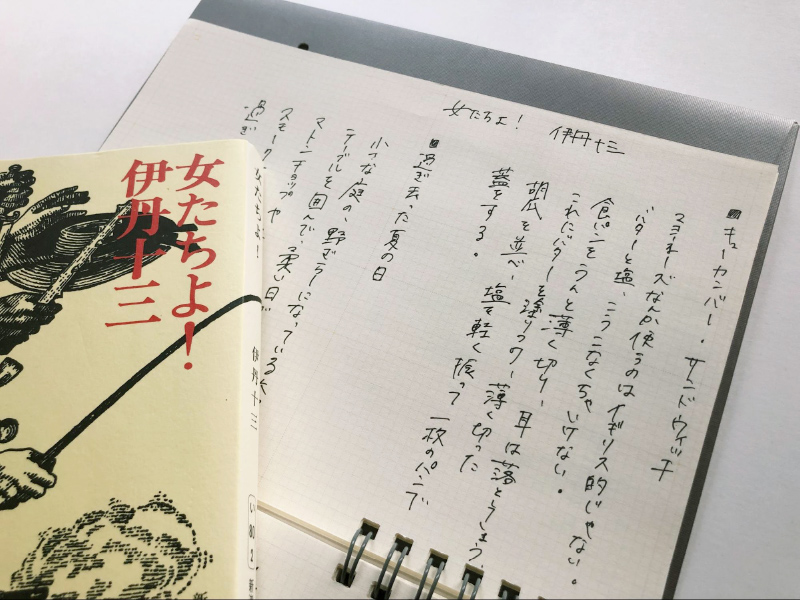 女たちよ！
伊丹十三
女たちよ！
伊丹十三
い 80 2
新
女たちよ！ 伊丹十三
■キューカンバー・サンドウィッチ
マヨネーズなんか使うのはイギリス的じゃない。
バターと塩、こうこなくちゃいけない。
食パンをうんと薄く切り、耳は落とそう。
これにバターを塗りつけ、薄く切った
胡瓜を並べ、塩を軽く振って一枚のパンで
蓋をする。
■過ぎ去った夏の日
小さな庭の、野ざらしになっている
テーブルを囲んで、柔い日
マトンチョップや
スモーク
過ぎ